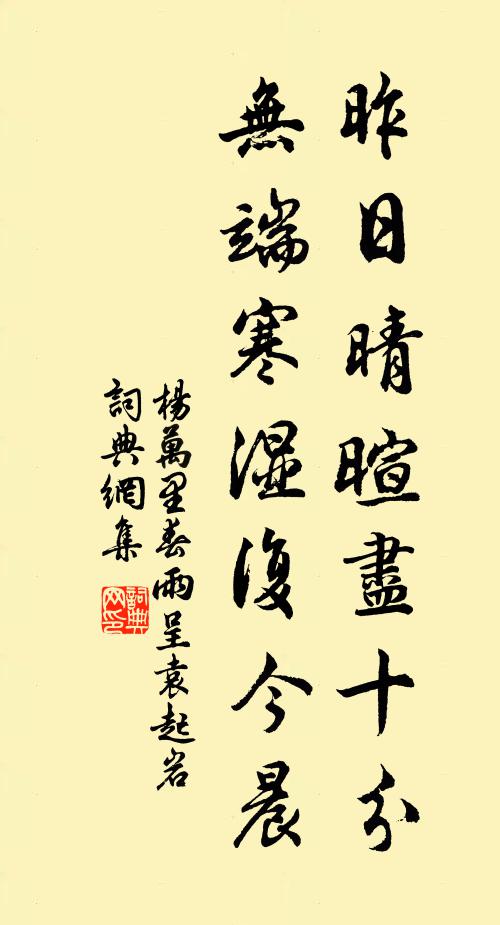 昨日晴暄盡十分
無端寒濕復今晨
楊萬里春雨呈袁起岩
詞典網集
詞典网印